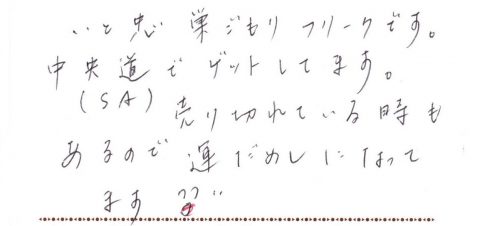 いと忠 巣ごもり フリークです。
中央道でゲットしてます。
(SA) 売り切れている時も
あるので 運だめしになって
ます